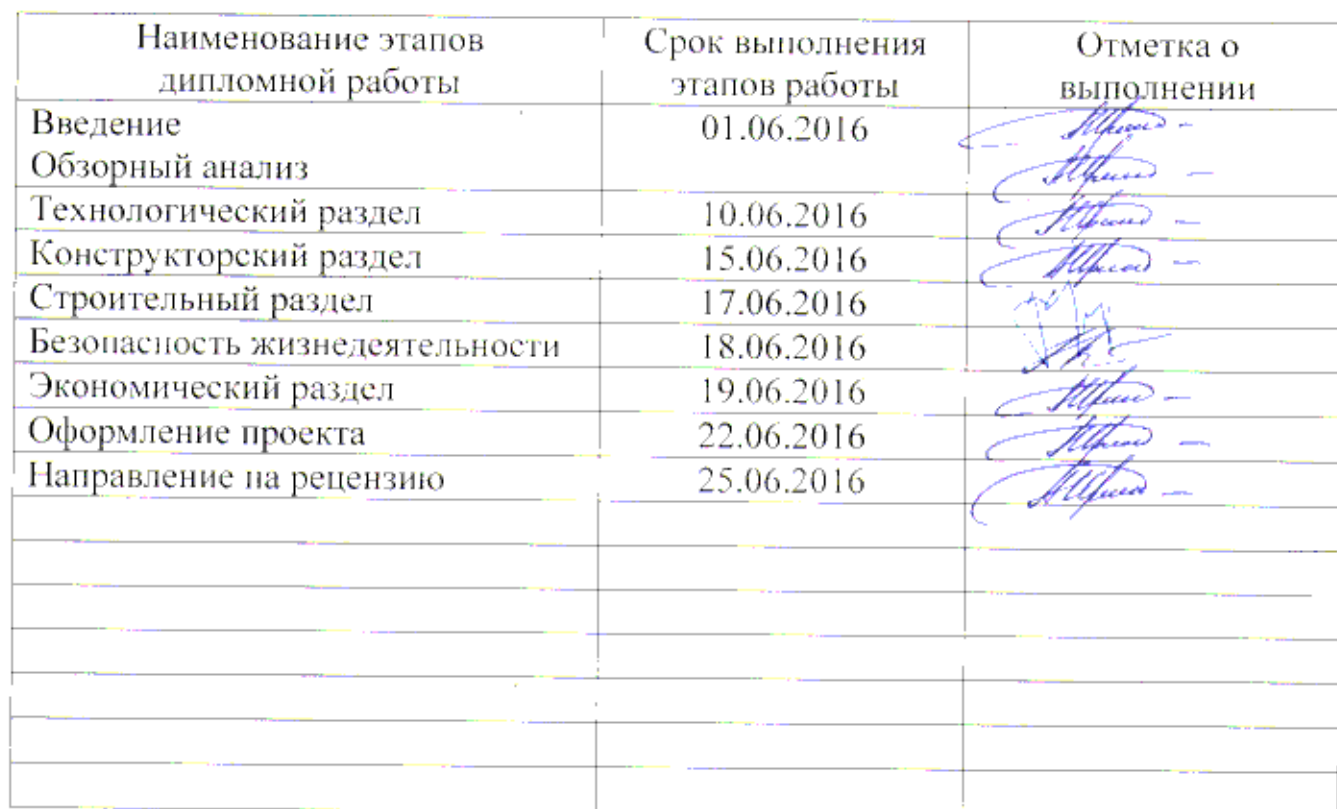 Наименование этапов Срок выполнения Отметка о
дипломной работы этапов работы выполнении
Введение 01.06.2016
Обзорный анализ
Технологический раздел 10.06.2016
Конструкторский раздел 15.06.2016
Строительный раздел 17.06.2016
Безопасность жизнедеятельности 18.06.2016
Экономический раздел 19.06.2016
Оформление проекта 22.06.2016
Направление на рецензию 25.06.2016